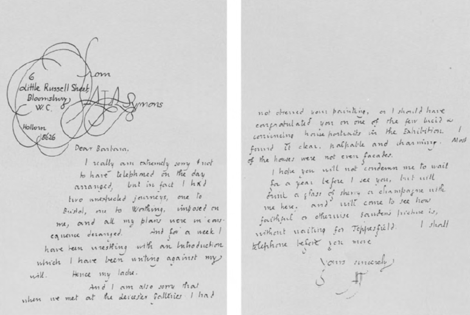 From
6
Little Russell Street
Bloomsbury,
W.C.
AJA Symons
Holborn
Dear Barbara,
I really am extremely sorry not
to have telephoned on the day
arranged, but in fact I had
two unexpected journeys, one to
Bristol, one to Worthing, imposed on
me, and all my plans were in cons-
equence deranged. And for a week I
have been wrestling with an Introduction
which I have been writing against my
will. Hence my laches.
And I am also sorry that
when we met at the Leicester Galleries I had
not observed your painting, or I should have
congratulated you on one of the few lucid &
convincing house portraits in the Exhibition. I
found it clear, palpable and charming. Most
of the houses were not even facades.
I hope you will not condemn me to wait
for a year before I see you, but will
drink a glass of sherry or champagne with
me here; and will come to see how
faithful or otherwise picture is,
without waiting for I shall
telephone before you move
Yours sincerely